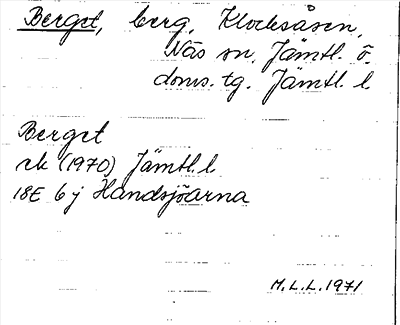 Berget, berg, Klocksåsen,
Näs sn, Jämtl. ö.
doms. tg. Jämtl. l
Berget
rk (1970) Jämtl. l
18E 6 j Handsjöarna
M.L.L. 1971